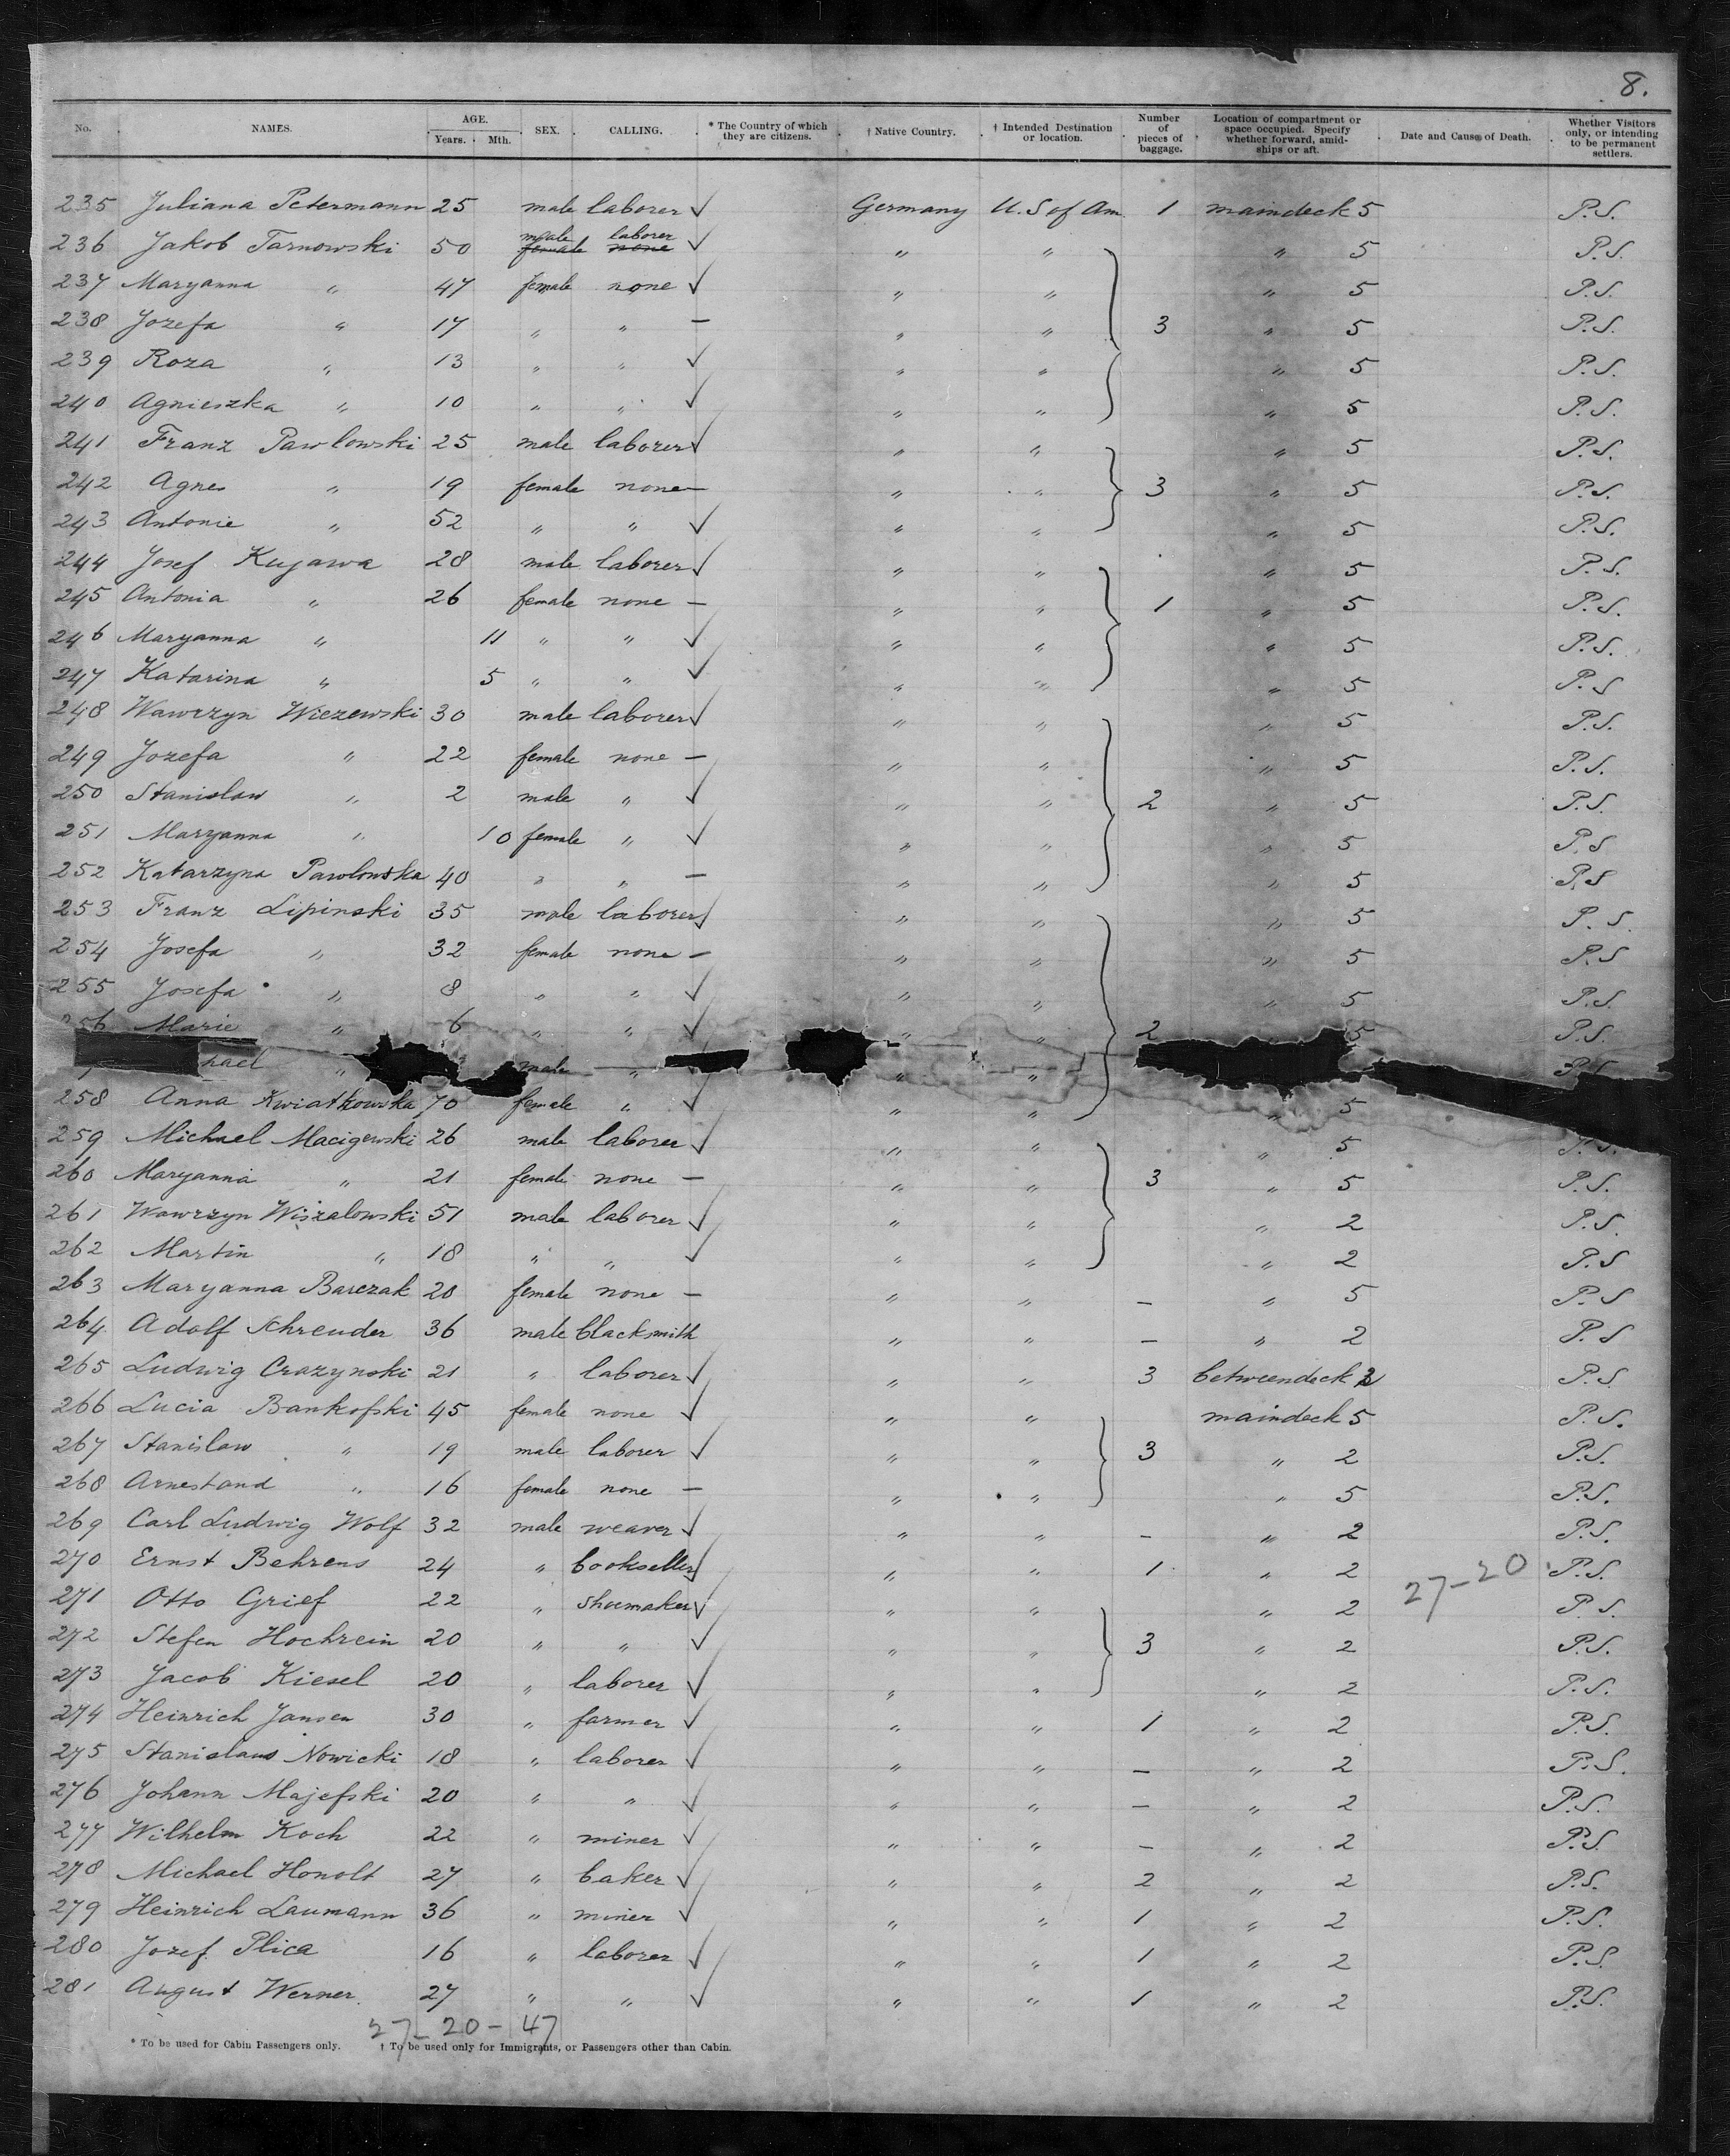 8.
No. NAMES. AGE. Years. Mth. SEX. CALLING. * The Country of which they are citizens. † Native Country. † Intended Destination or location. Number of pieces of baggage. Location of compartment or space occupied. Specify whether forward, amidships or aft. Date and Cause of Death. Whether Visitors only, or intending to be permanent settlers.
235 Juliana Petermann 25 male laborer ✓ Germany U. S of Am. 1 maindeck 5 P.S.
236 Jakob Tarnowski 50 male laborer female none ✓ " " " 5 P.S.
237 Maryanna " 47 female none ✓ " " " 5 P.S.
238 Jozefa " 17 " " — " " 3 " 5 P.S.
239 Roza " 13 " " ✓ " " " 5 P.S.
240 Agnieszka " 10 " " ✓ " " " 5 P.S.
241 Franz Pawlowski 25 male laborer ✓ " " " 5 P.S.
242 Agnes " 19 female none — " " 3 " 5 P.S.
243 Antonie " 52 " " ✓ " " " 5 P.S.
244 Josef Kujawa 28 male laborer ✓ " " " 5 P.S.
245 Antonia " 26 female none — " " 1 " 5 P.S.
246 Maryanna " 11 " " ✓ " " " 5 P.S.
247 Katarina " 5 " " ✓ " " " 5 P.S
248 Wawrzyn Wiezewski 30 male laborer ✓ " " " 5 P.S.
249 Jozefa " 22 female none — " " " 5 P.S.
250 Stanislaw " 2 male " ✓ " " 2 " 5 P.S.
251 Maryanna " 10 female " ✓ " " " 5 P.S
252 Katarzyna Pawlowska 40 " " — " " " 5 P.S
253 Franz Lipinski 35 male laborer ✓ " " " 5 P.S.
254 Josefa " 32 female none — " " " 5 P.S
255 Josefa " 8 " " ✓ " " " 5 P.S.
256 Marie " 6 " " ✓ " " 2 5 P.S.
hael " male " ✓ " " P.S
258 Anna Kwiatkowska 70 female " ✓ " " " 5
259 Michael Macigewski 26 male laborer ✓ " " " 5 P.S.
260 Maryanna " 21 female none — " " 3 " 5 P.S.
261 Wawrzyn Wiszalowski 51 male laborer ✓ " " " 2 P.S.
262 Martin " 18 " " ✓ " " " 2 P.S
263 Maryanna Barczak 20 female none — " " — " 5 P.S
264 Adolf Schreuder 36 male blacksmith " " — " 2 P.S
265 Ludwig Crazynski 21 " laborer ✓ " " 3 betweendeck 2 P.S.
266 Lucia Bankofski 45 female none ✓ " " maindeck 5 P.S.
267 Stanislaw " 19 male laborer ✓ " " 3 " 2 P.S.
268 Arnestand " 16 female none — " " " 5 P.S.
269 Carl Ludwig Wolf 32 male weaver ✓ " " — " 2 P.S.
270 Ernst Behrens 24 " bookseller ✓ " " 1 " 2 27-20 P.S.
271 Otto Grief 22 " shoemaker ✓ " " " 2 P.S.
272 Stefen Hochrein 20 " " ✓ " " 3 " 2 P.S.
273 Jacob Kiesel 20 " laborer ✓ " " " 2 P.S.
274 Heinrich Jansen 30 " farmer ✓ " " 1 " 2 P.S.
275 Stanislaus Nowicki 18 " laborer ✓ " " — " 2 P.S.
276 Johann Majefski 20 " " ✓ " " — " 2 P.S.
277 Wilhelm Koch 22 " miner ✓ " " — " 2 P.S.
278 Michael Honolt 27 " baker ✓ " " 2 " 2 P.S.
279 Heinrich Laumann 36 " miner ✓ " " 1 " 2 P.S.
280 Jozef Plica 16 " laborer ✓ " " 1 " 2 P.S.
281 August Werner 27 " " ✓ " " 1 " 2 P.S.
27-20-47
* To be used for Cabin Passengers only. † To be used only for Immigrants, or Passengers other than Cabin.